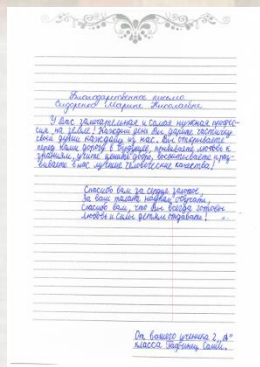 Благодарственное письмо
Сидоренко Марине Николаевне
У Вас замечательная и самая нужная профес-
сия на земле! Каждый день Вы дарите частичку
своей души каждому из нас. Вы открываете
перед нами дорогу в будущее, прививаете любовь к
знаниям, учите ценить добро, воспитываете и раз-
виваете в нас лучшие человеческие качества!
Спасибо вам за сердце золотое,
За ваш талант наукам обучать,
Спасибо вам, что Вы всегда готовы
Любовь и силы детям отдавать!
От вашего ученика 2 „А“
класса Саши.